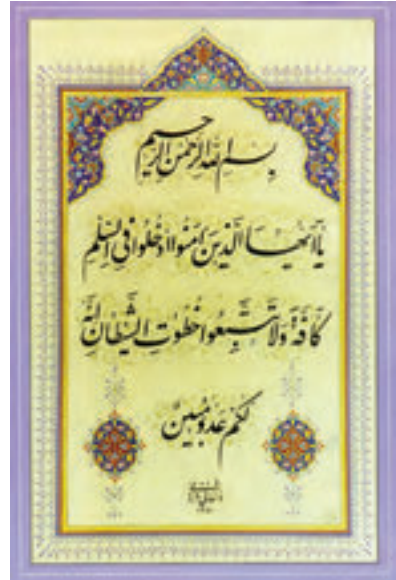 بسم الله الرحمن الرحيم
يا أيها الذين آمنوا ادخلوا في السلم
كافة ولا تتبعوا خطوات الشيطان إنه
لكم عدو مبين